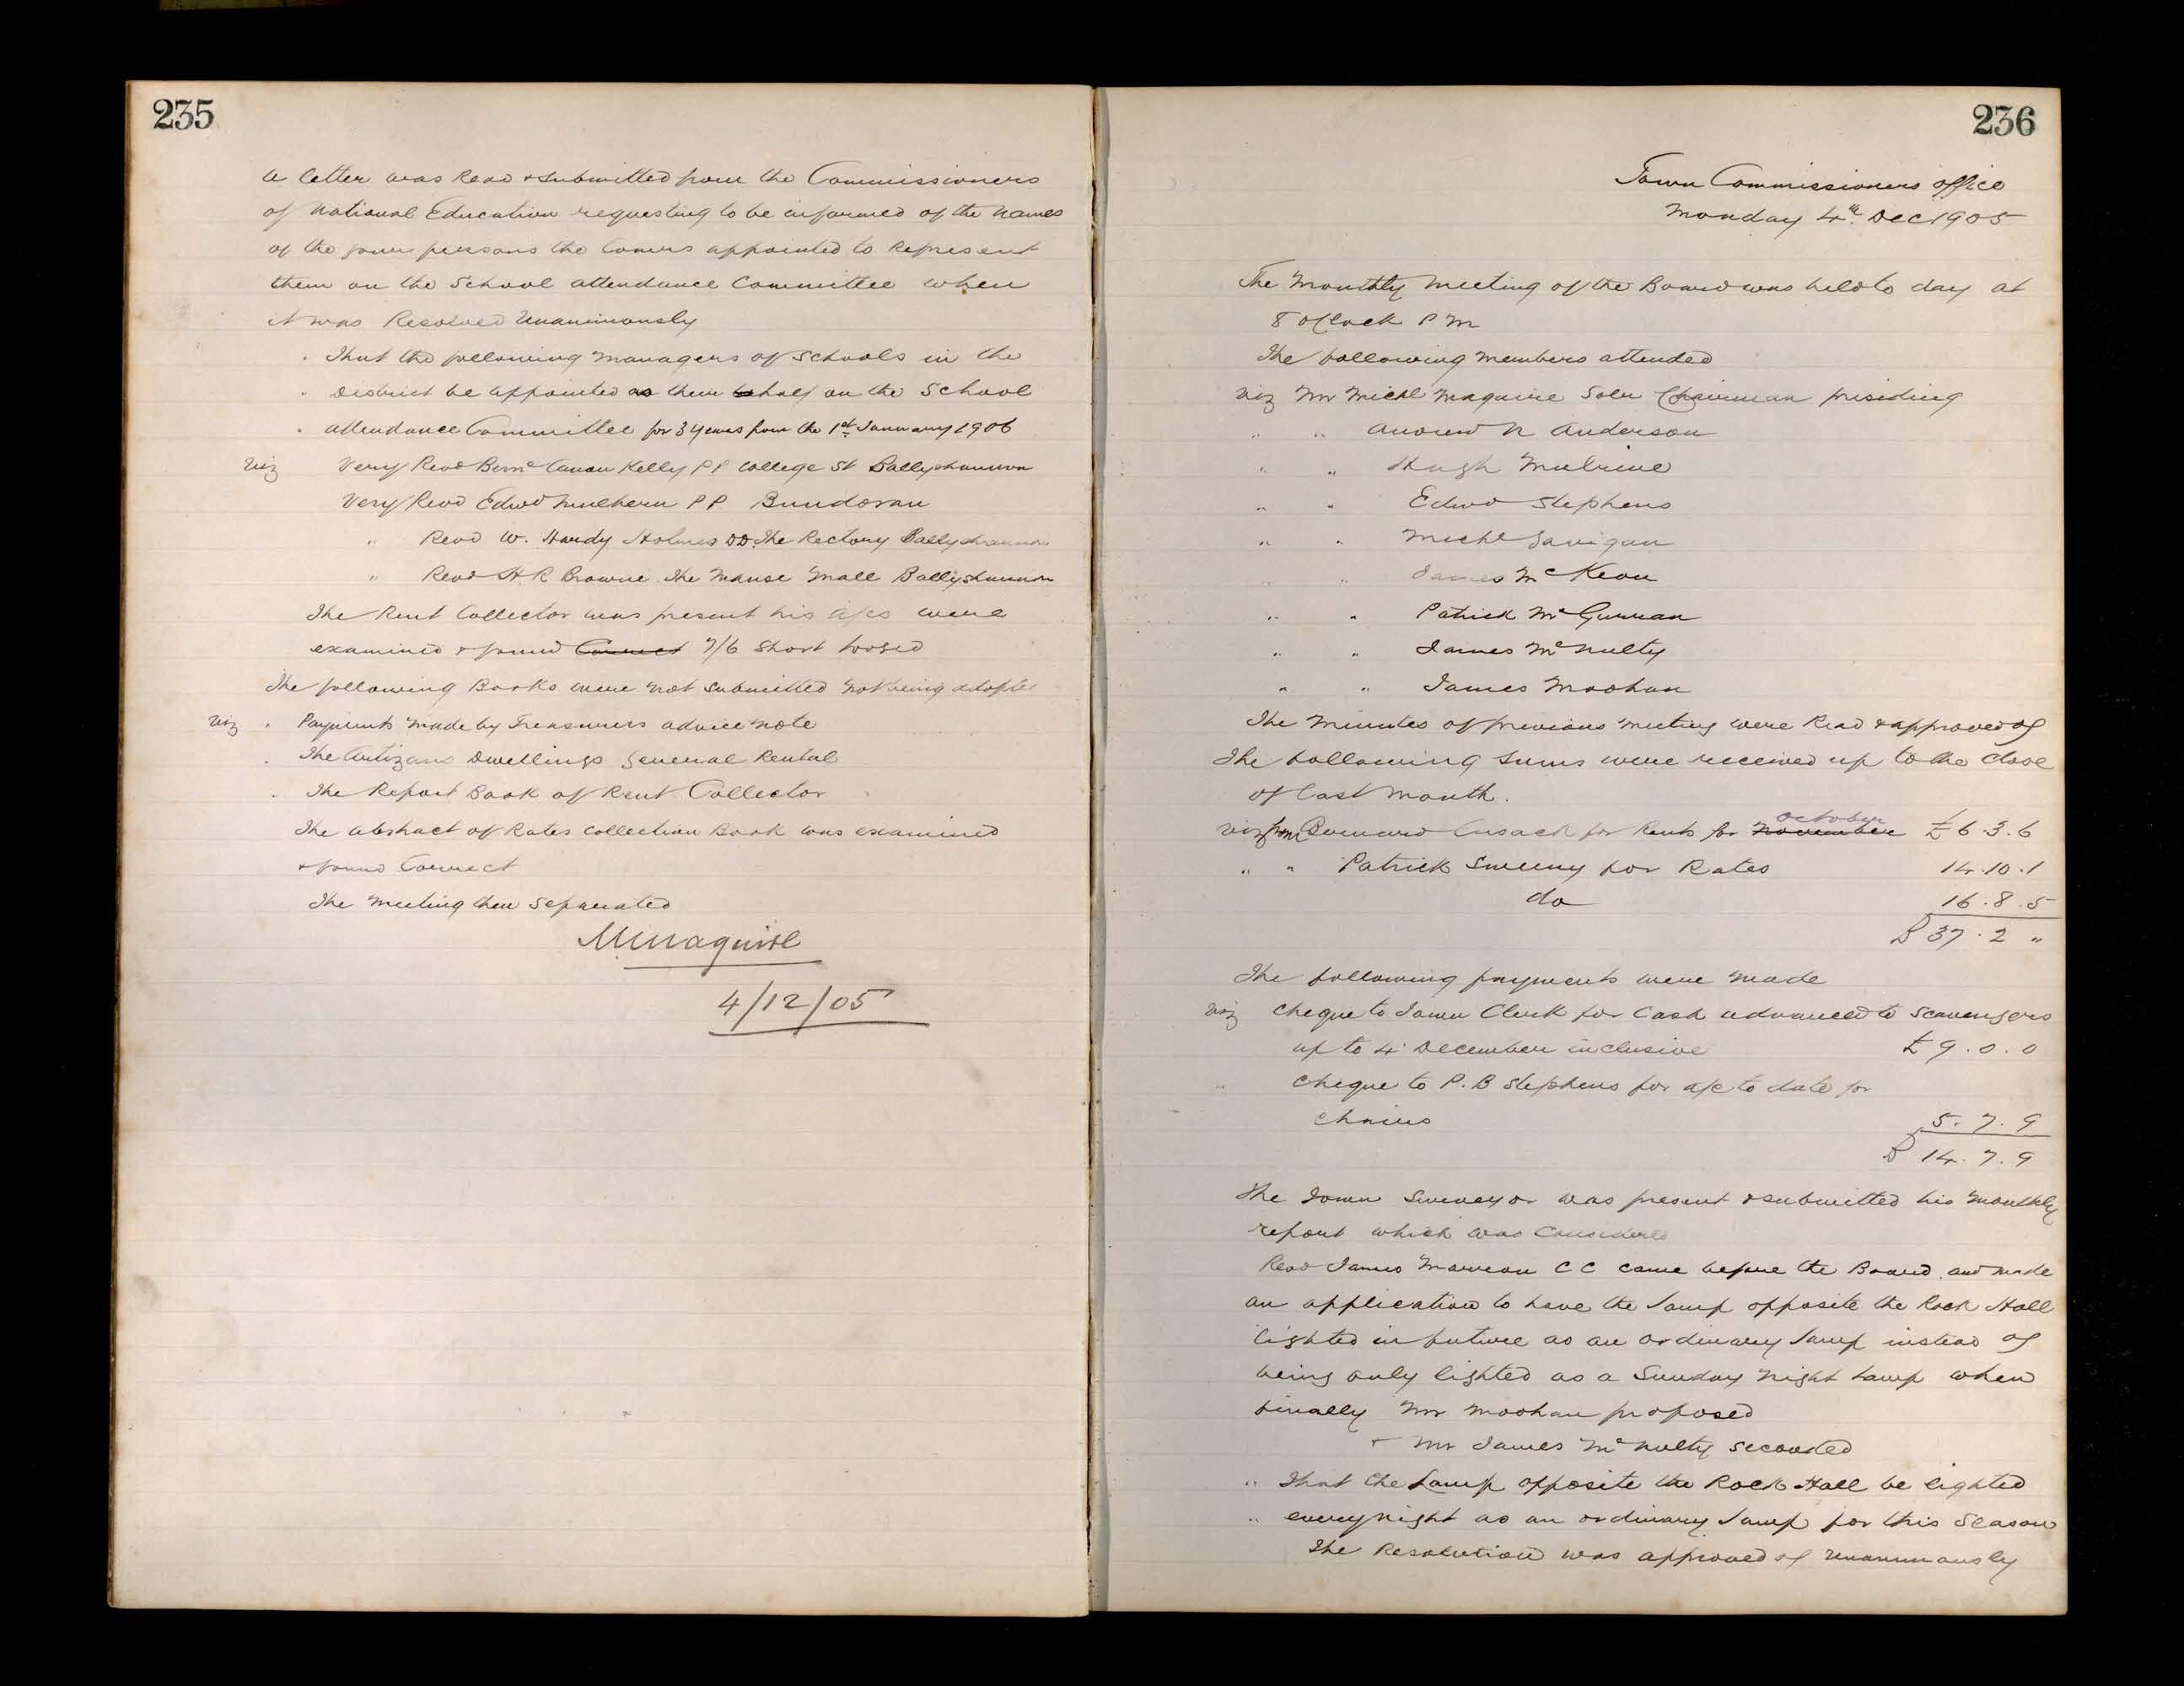 235
A letter was Read & submitted from the Commissioners
of National Education requesting to be informed of the names
of the four persons the Comrs appointed to Represent
them on the School attendance Committee when
it was Resolved Unanimously
" That the following Managers of Schools in the
" District be appointed as their behalf on the School
" attendance Committee for 3 years from the 1st January 1906
Viz Very Revd Bernd Canon Kelly PP College St Ballyshannon
Very Revd Edwd Mulhern PP. Bundoran
" Revd W. Hardy Holmes DD. The Rectory Ballyshannon
" Revd H R Browne The Manse Mall Ballyshannon
The Rent Collector was present his a/cs were
examined & found Correct 7/6 short
The following Books were not submitted not being
Viz " Payments made by Treasurers advice note
" The Artizans Dwellings General Rental
" The Report Book of Rent Collector
The abstract of Rates Collection Book was examined
& found Correct
The Meeting then Separated
M. Maguire
4/12/05
236
Town Commissioners office
Monday 4th Dec 1905
The Monthly Meeting of the Board was held to day at
8 oClock P M
The following members attended
Viz Mr Michl Maguire Solr Chairman presiding
" " Andrew N Anderson
" " Hugh Mulrine
" " Edwd Stephens
" " Michl Gavigan
" " James McKeon
" " Patrick McGurran
" " James McNulty
" " James Moohan
The Minutes of previous meeting were Read & approved of
The following Sums were received up to the Close
of last Month.
October
Viz from Bernard Cusack for Rents for November £6.3.6
" " Patrick Sweeny for Rates 14.10.1
do 16.8.5
£37.2 "
The following payments were made
Viz Cheque to Town Clerk for Cash advanced to Scavengers
up to 4 December inclusive £9.0.0
" Cheque to P.B Stephens for a/c to date for
chairs 5.7.9
£14.7.9
The Town Surveyor was present & submitted his Monthly
report which was Considered
Revd James CC came before the Board and made
an application to have the lamp opposite the Rock Hall
lighted in future as an ordinary lamp instead of
being only lighted as a Sunday night lamp when
finally Mr Moohan proposed
& Mr James McNulty seconded
" That the Lamp opposite the Rock Hall be lighted
" every night as an ordinary lamp for this Season
The Resolution was approved of Unanimously